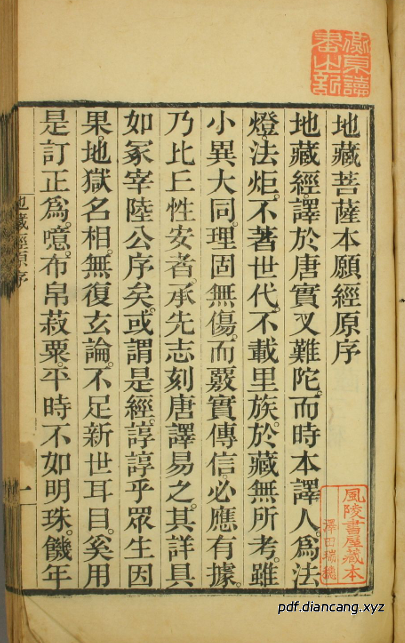 地藏菩薩本願經原序
地藏經譯於唐實叉難陀。而時本譯人。爲法
燈。法炬。不著世代。不載里族。於藏無所考。雖
小異大同。理固無傷。而覈實傳信必應有據。
乃比丘性安者。承先志刻唐譯易之。其詳具
如冢宰陸公序矣。或謂是經。諄諄乎眾生因
果。地獄名相。無復玄論。不足新世耳目。奚用
是訂正爲。噫。布帛菽粟。平時不如明珠。饑年
地藏經原序
一
風陵書屋藏本
pdf.diancang.xyz